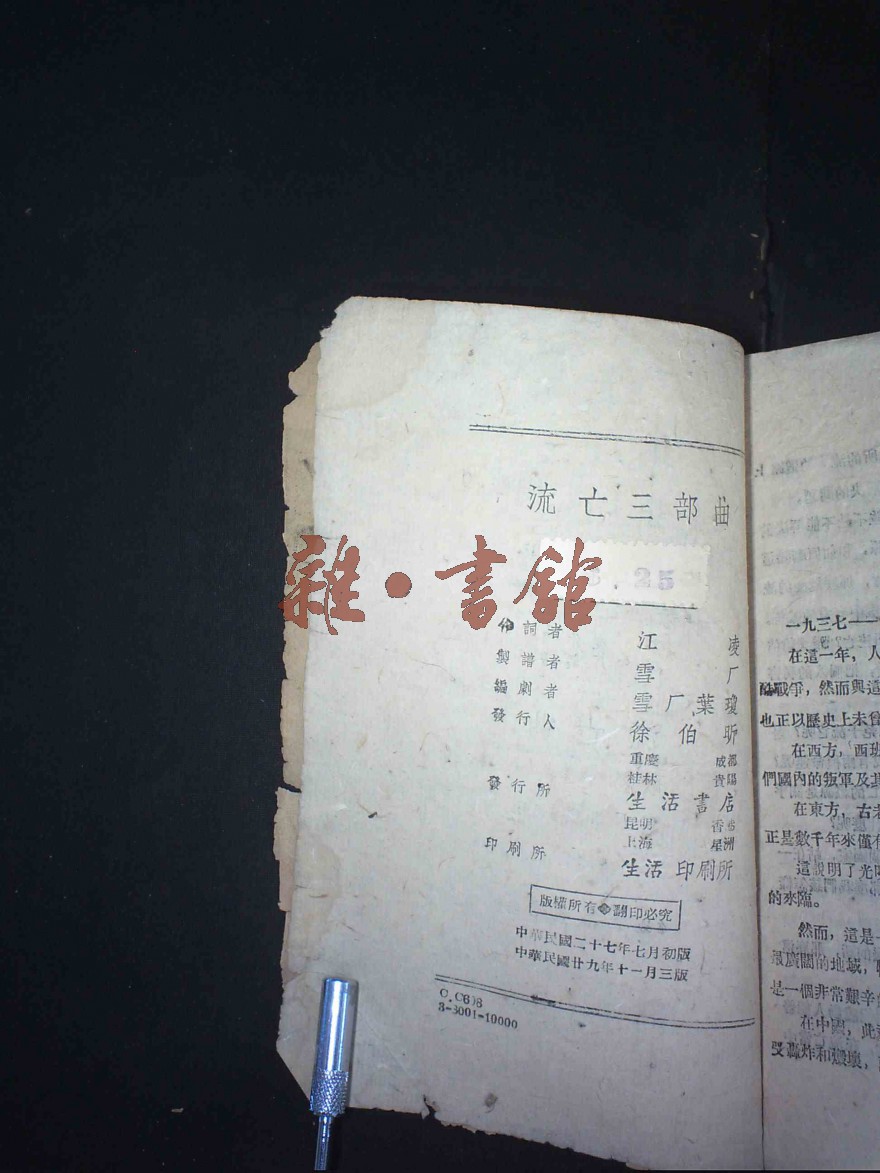 流亡三部曲
雜·書館
.25
作詞者 江凌
製譜者 雪厂
編劇者 雪厂 葉瓊
發行人 徐伯昕
重慶 成都
桂林 貴陽
發行所 生活書店
昆明 香港
上海 星洲
印刷所 生活印刷所
版權所有 翻印必究
中華民國二十七年七月初版
中華民國廿九年十一月三版
C.C608
3-3001-10000
一九三七——
在這一年，人
酷戰爭，然而與這
也正以歷史上未曾
在西方，西班
們國內的叛軍及其
在東方，古老
正是數千年來僅有
這說明了光明
的來臨。
然而，這是一
最廣闊的地域，
是一個非常艱辛的
在中國，此
受轟炸和燬壞，